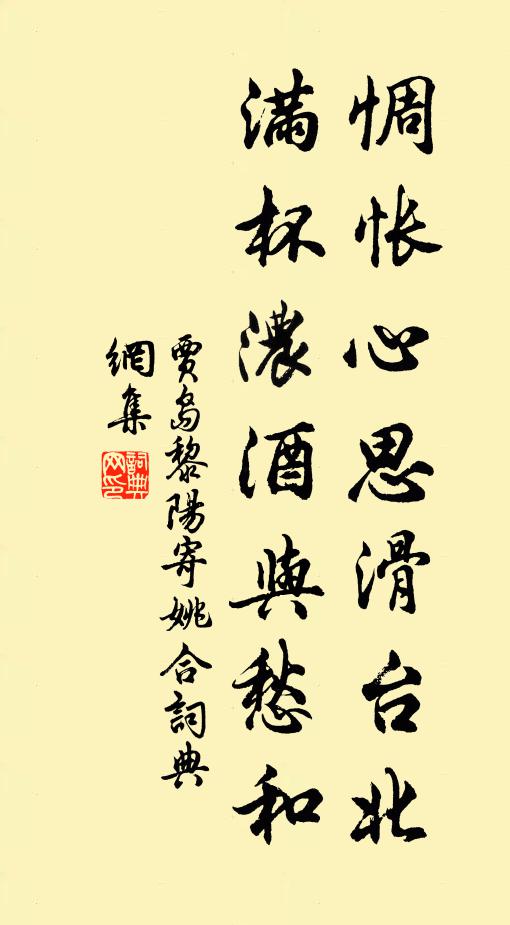 惆怅心思滑台北
滿杯濃酒與愁和
賈島黎陽寄姚合詞典
網集
詞典
网印